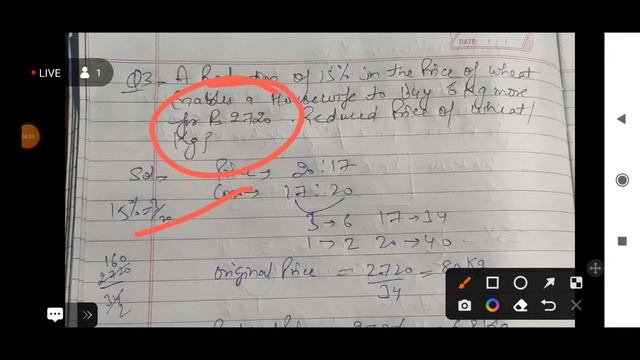 LIVE 1
DATE
Q3- A Reduction of 15% in the Price of wheat
enables a Housewife to buy 6 Kg more
for Rs 2720. Reduced Price of wheat/
Kg?
Sol- Price → 20:17
Con → 17:20
15% = 3/20
3→6 17→34
1→2 20→40
160
2720
34/2
original Price = 2720/34 = 80 Kg